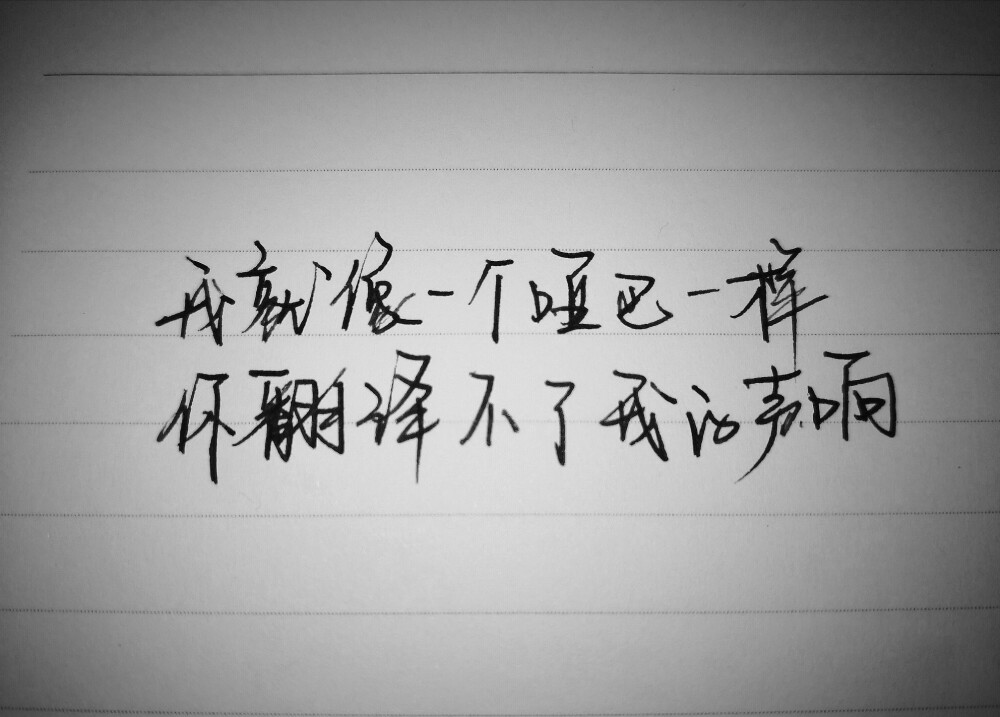 我就像一个哑巴一样
你翻译不了我的声响